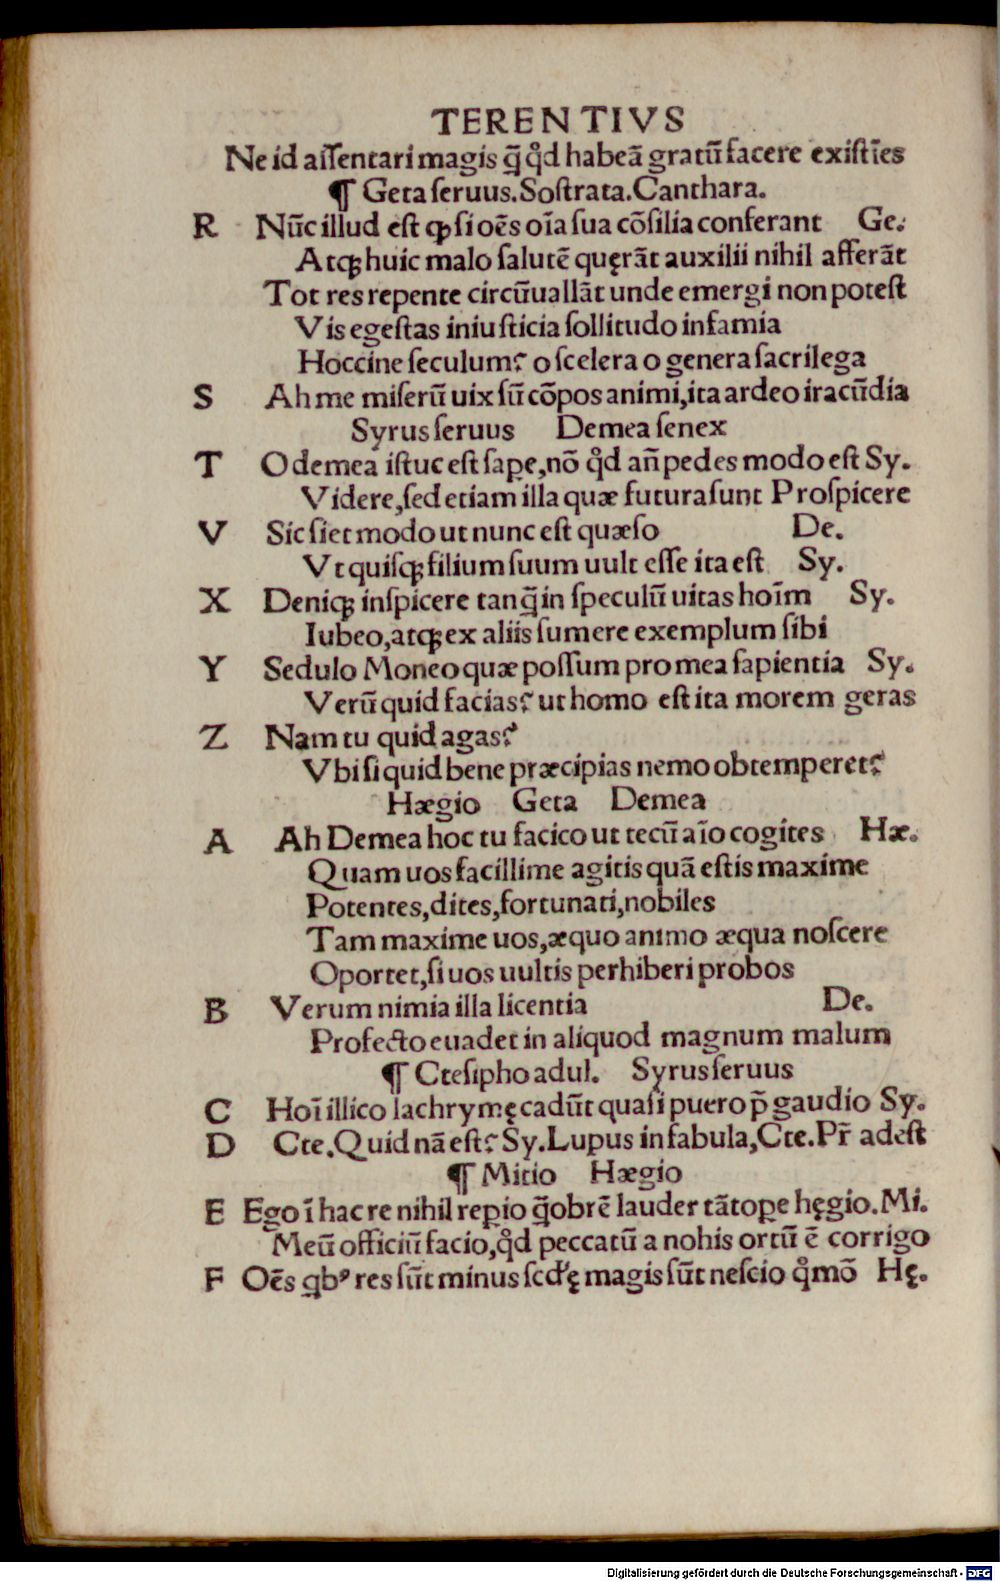 TERENTIVS
Ne id assentari magis q̃ qd̉ habeā gratū facere existīes
¶ Geta seruus. Sostrata. Canthara.
R Nūc illud est ꝙ si oēs oīa sua cōsilia conferant Ge.
Atqꝫ huic malo salutē quęrāt auxilii nihil afferāt
Tot res repente circūuallāt unde emergi non potest
Vis egestas iniusticia sollitudo infamia
Hoccine seculum? o scelera o genera sacrilega
S Ah me miserū uix sū cōpos animi, ita ardeo iracūdia
Syrus seruus Demea senex
T O demea istuc est saꝑe, nō qd̉ añ pedes modo est Sy.
Videre, sed etiam illa quæ futura sunt Prospicere
V Sic siet modo ut nunc est quæso De.
Vt quisqꝫ filium suum uult esse ita est Sy.
X Deniqꝫ inspicere tanq̃ in speculū uitas hoīm Sy.
Iubeo, atqꝫ ex aliis sumere exemplum sibi
Y Sedulo Moneo quæ possum pro mea sapientia Sy.
Verū quid facias? ut homo est ita morem geras
Z Nam tu quid agas?
Vbi si quid bene præcipias nemo obtemperet?
Hægio Geta Demea
A Ah Demea hoc tu facico ut tecū aīo cogites Hæ.
Quam uos facillime agitis quā estis maxime
Potentes, dites, fortunati, nobiles
Tam maxime uos, æquo animo æqua noscere
Oportet, si uos uultis perhiberi probos
B Verum nimia illa licentia De.
Profecto euadet in aliquod magnum malum
¶ Ctesipho adul. Syrus seruus
C Hoī illico lachrymę cadūt quasi puero p̄ gaudio Sy.
D Cte. Quid nā est? Sy. Lupus in fabula, Cte. Pr̄ adest
¶ Mitio Hægio
E Ego ī hac re nihil reꝑio q̃obrē lauder tātoꝑe hęgio. Mi.
Meū officiū facio, qd̉ peccatū a nohis ortū ē corrigo
F Oēs qbꝰ res sūt minus scd'ę magis sūt nescio qm̉ō Hę.
Digitalisierung gefördert durch die Deutsche Forschungsgemeinschaft - DFG